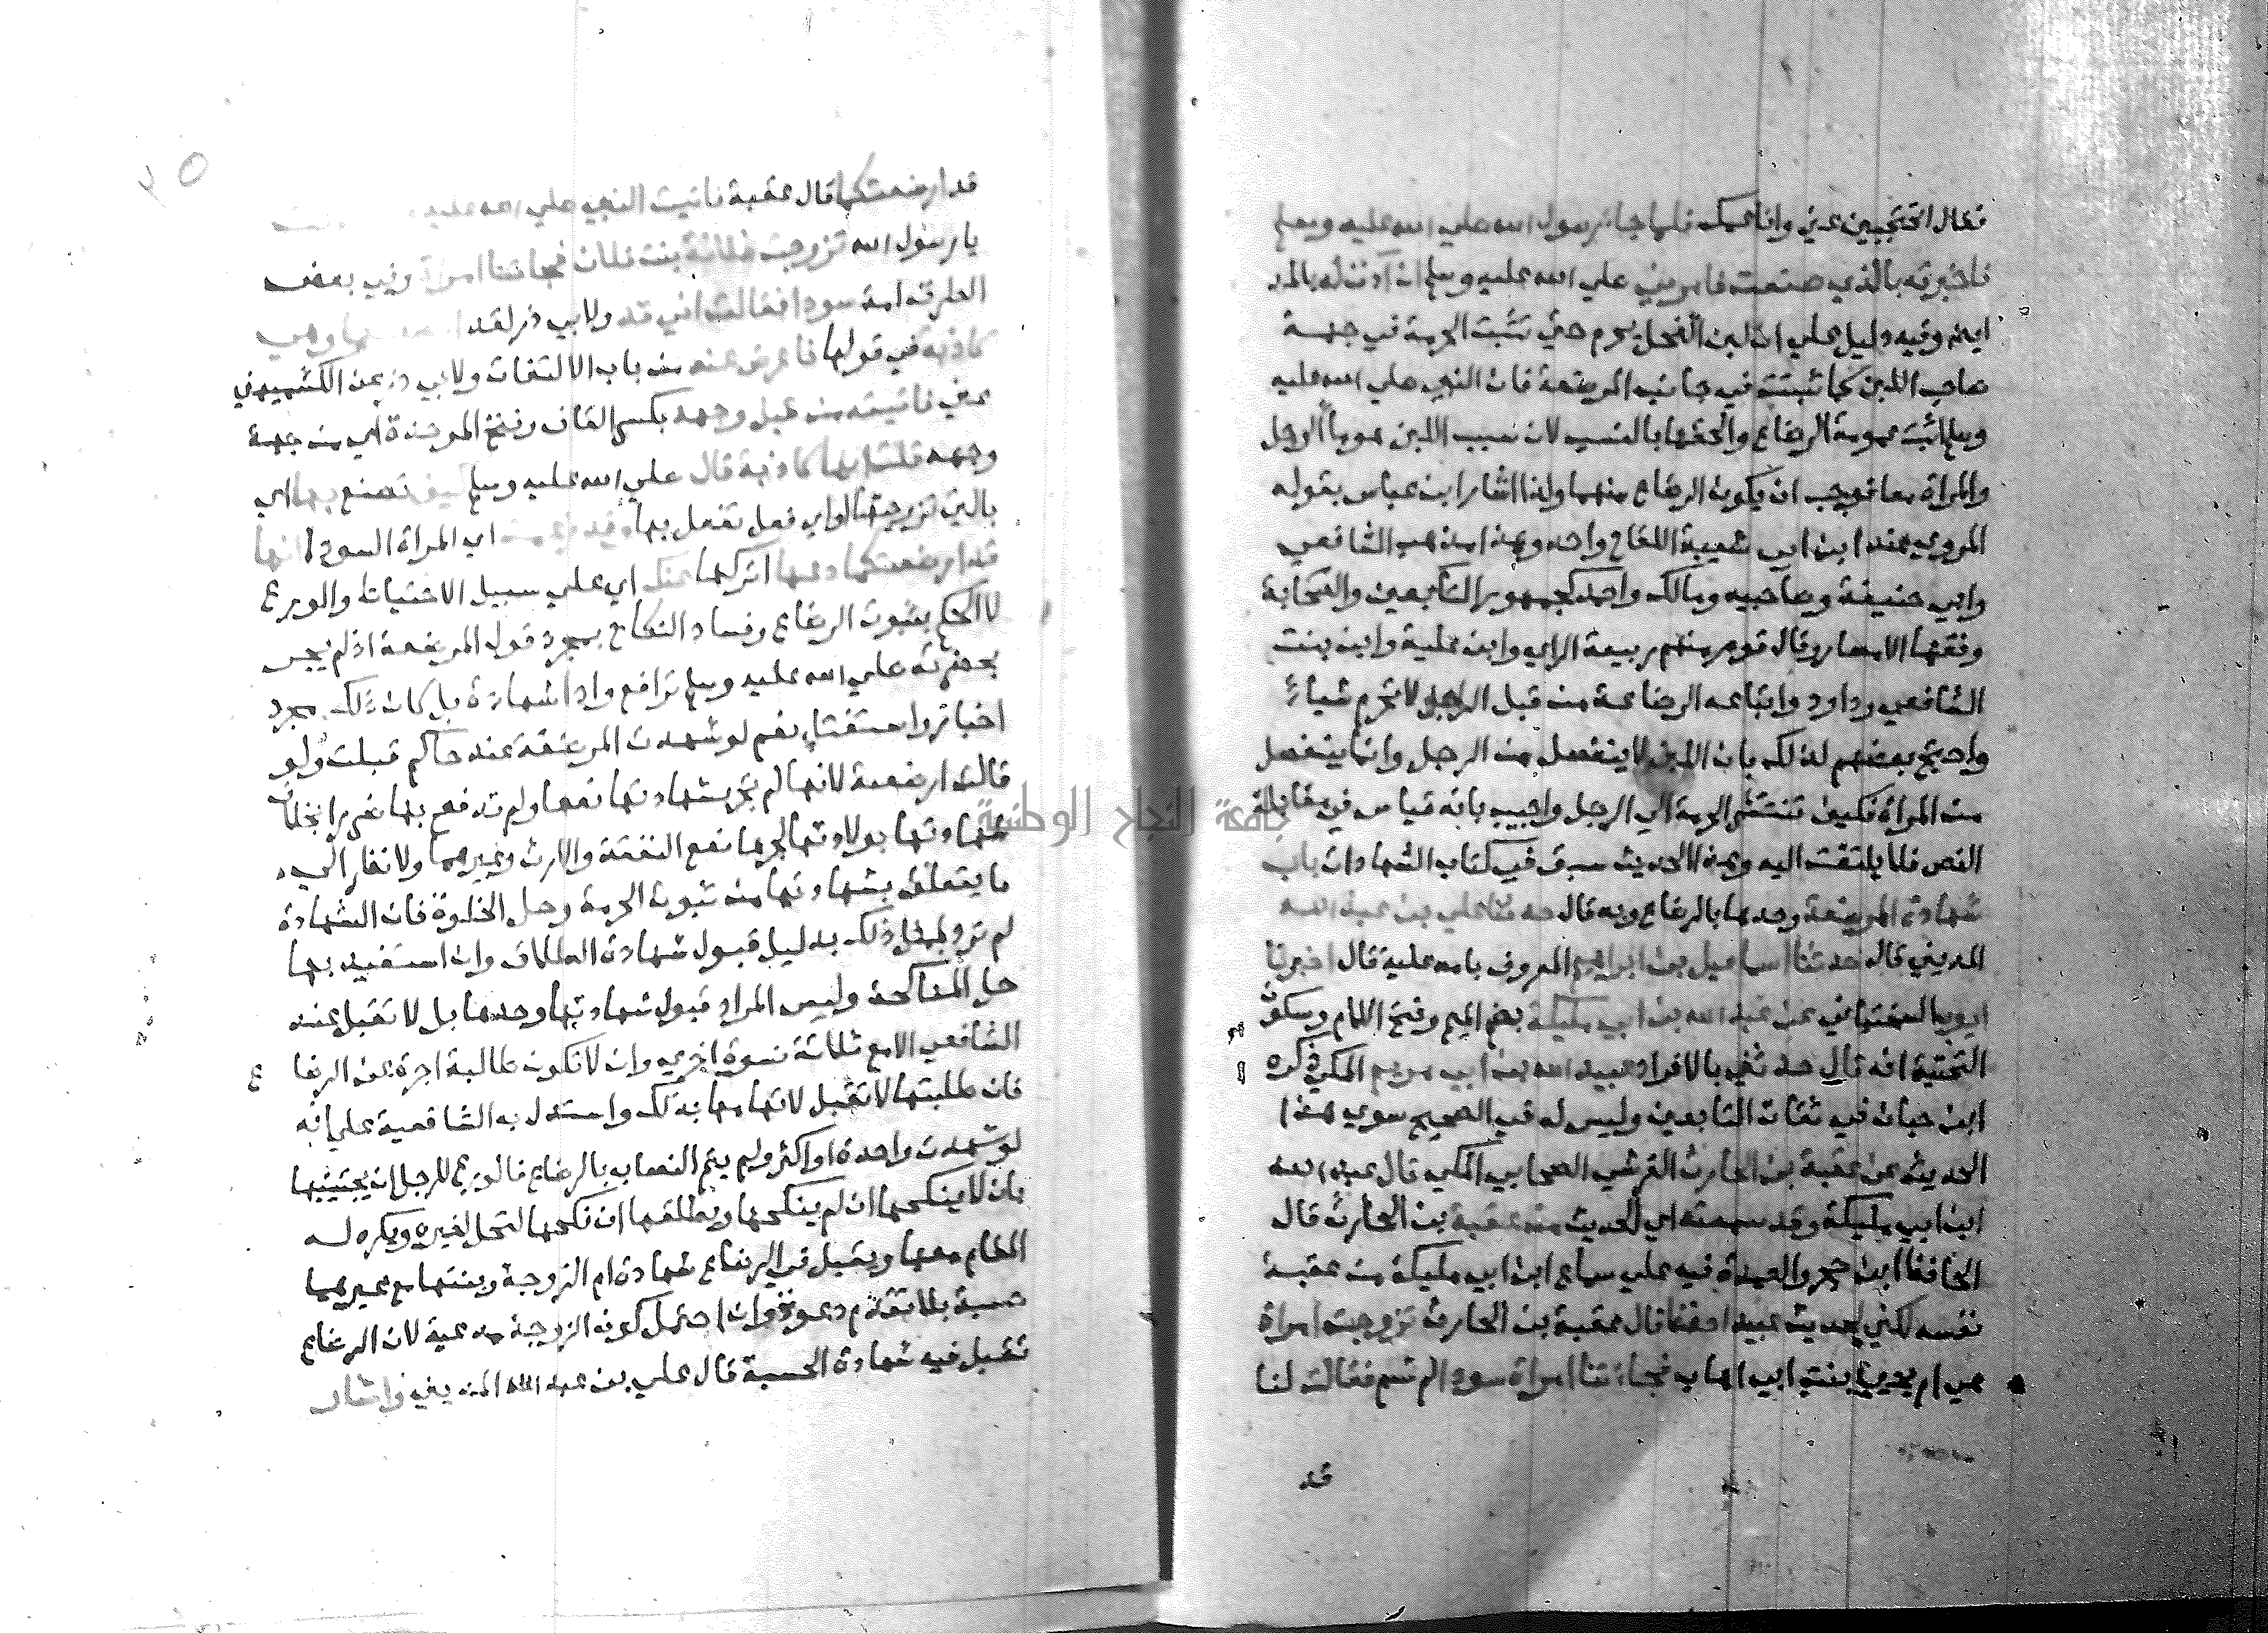 فقال اتحتجبين عني وانا عمك فلما جا رسول الله صلي الله عليه وسلم
فاخبرته بالذي صنعت فامرني صلي الله عليه وسلم ان اذن له بالمد
ايضا وفيه دليل علي ان لبن الفحل يحرم حتي تثبت الحرمة في جهة
صاحب اللبن كما ثبتت في جانب المرضعة فان النبي صلي الله عليه
وسلم اثبت عمومة الرضاع والحقها بالنسب لان سبب اللبن هو ما الرجل
والمراة معا فوجب ان يكون الرضاع منهما ولذا اشار ابن عباس بقوله
المروي عند ابن ابي شيبة اللقاح واحد وهذا مذهب الشافعي
وابي حنيفة وصاحبيه ومالك واحمد كجمهور التابعين والصحابة
وفقها الامصار وقال قوم منهم ربيعة الراي وابن علية وابن بنت
الشافعي وداود واتباعه الرضاعة من قبل الرجل لا تحرم شيا
واحتج بعضهم لذلك بان اللبن لا ينفصل من الرجل وانما ينفصل
من المراة فكيف تنتشر الحرمة الي الرجل واجيب بانه قياس في مقابلة
النص فلا يلتفت اليه وهذا الحديث سبق في كتاب الشهادات باب
شهادة المرضعة وحدها بالرضاع وبه قال حدثنا علي بن عبد الله
المديني قال حدثنا اسماعيل بن ابراهيم المعروف بابن علية قال اخبرنا
ايوب السختياني عن عبد الله بن ابي مليكة بضم الميم وفتح اللام وسكون
التحتية انه قال حدثني بالافراد عبيد الله بن ابي مريم المكي ذكره
ابن حبان في ثقات التابعين وليس له في الصحيح سوي هذا
الحديث عن عقبة بن الحارث القرشي الصحابي المكي قال عبد الله
ابن ابي مليكة وقد سمعته اي الحديث من عقبة بن الحارث قال
الحافظ ابن حجر والعمدة فيه علي سماع ابن ابي مليكة من عقبة
نفسه لكني لحديث عبيد احفظ قال عقبة بن الحارث تزوجت امراة
هي ام يحيي بنت ابي اهاب فجاءتنا امراة سودا لم تسم فقالت لنا
قد
٢٥
قد ارضعتكما قال عقبة فاتيت النبي صلي الله عليه
يا رسول الله تزوجت فلانة بنت فلان فجاءتنا امراة وفي بعض
الطرق امة سودا فقالت اني قد ولابي ذر لقد وهي
كاذبة في قولها فاعرض عنه من باب الالتفات ولابي ذر عن الكشميهني
عني فاتيته من قبل وجهه بكسر القاف وفتح الموحدة اي من جهة
وجهه قلت انها كاذبة قال صلي الله عليه وسلم كيف تصنع بها اي
بالتي تزوجتها او اي فعل تفعل بها وقد زعمت اي المراة السودا انها
قد ارضعتكما دعها اتركها عنك اي علي سبيل الاحتياط والورع
لا الحكم بثبوت الرضاع وفساد النكاح بمجرد قول المرضعة اذ لم يجر
بحضرته صلي الله عليه وسلم ترافع واداشهادة بل كان ذلك مجرد
اخبار واستفتا نعم لو شهدت المرضعة عند حاكم قبلت ولو
قالت ارضعته لانها لم تجر بشهادتها نفعا ولم تدفع بها ضررا بخلاف
شهادتها بولادتها لجرها نفع النفقة والارث وغيرهما ولا نظر الي
ما يتعلق بشهادتها من ثبوت الحرمة وحل الخلوة فان الشهادة
لم ترد بمثل ذلك بدليل قبول شهادة الطلاق وان استفيد بها
حل المناكحة وليس المراد قبول شهادتها وحدها بل لا تقبل عند
الشافعي الا مع ثلاثة نسوة اخري وان لا تكون طالبة اجرة عن الرضاع
فان طلبتها لا تقبل لاتهامها بذلك واستدل به الشافعية علي انه
لو شهدت واحدة او اكثر ولم يتم النصاب بالرضاع فالورع للرجل ان يجتنبها
بان لا ينكحها ان لم ينكحها ويطلقها ان نكحها لتحل لغيره ويكره له
المقام معها ويقبل في الرضاع شهادة ام الزوجة وبنتها مع غيرهما
حسبة بلا تقدم دعوة وان احتمل كون الزوجة مدعية لان الرضاع
تقبل فيه شهادة الحسبة قال علي بن عبد الله المديني واشار
جامعة النجاح الوطنية